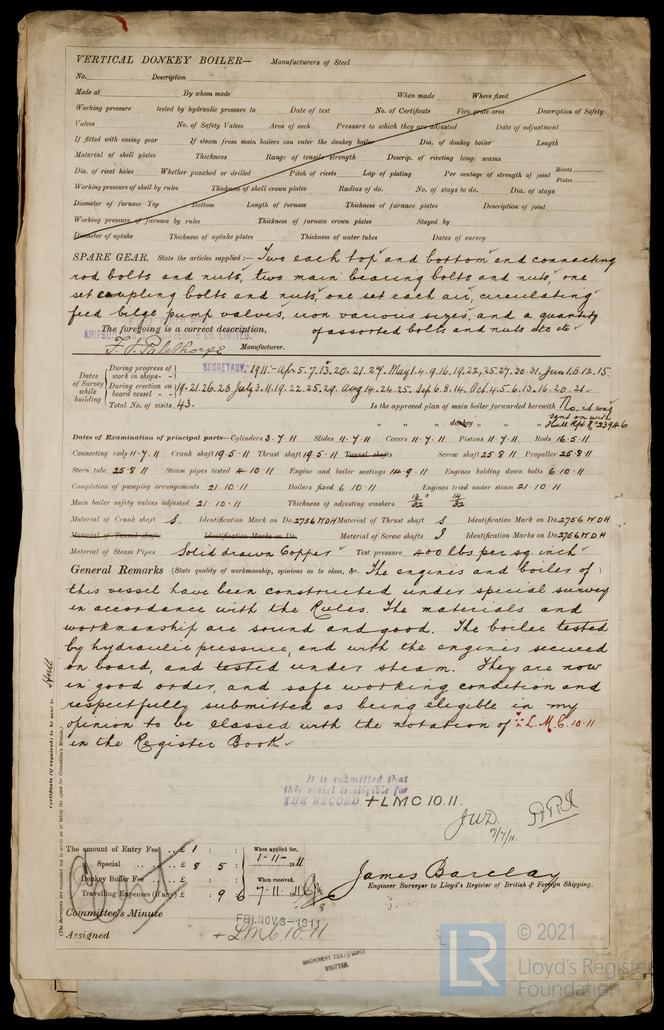 VERTICAL DONKEY BOILER— Manufacturers of Steel
No. Description
Made at By whom made When made Where fixed
Working pressure tested by hydraulic pressure to Date of test No. of Certificate Fire grate area Description of Safety
Valves No. of Safety Valves Area of each Pressure to which they are adjusted Date of adjustment
If fitted with easing gear If steam from main boilers can enter the donkey boiler Dia. of donkey boiler Length
Material of shell plates Thickness Range of tensile strength Descrip. of riveting long. seams
Dia. of rivet holes Whether punched or drilled Pitch of rivets Lap of plating Per centage of strength of joint Rivets Plates
Working pressure of shell by rules Thickness of shell crown plates Radius of do. No. of stays to do. Dia. of stays
Diameter of furnace Top Bottom Length of furnace Thickness of furnace plates Description of joint
Working pressure of furnace by rules Thickness of furnace crown plates Stayed by
Diameter of uptake Thickness of uptake plates Thickness of water tubes Dates of survey
SPARE GEAR. State the articles supplied:— Two each top and bottom end connecting
rod bolts and nuts, two main bearing bolts and nuts, one
set coupling bolts and nuts, one set each air, circulating
feed bilge pump valves, iron various sizes, and a quantity
of assorted bolts and nuts etc etc
The foregoing is a correct description,
Manufacturer.
SECRETARY.
Dates of Survey while building
During progress of work in shops- - 1911:- Apr 5. 7. 13. 20. 21. 27. May 1. 4. 9. 16. 19. 22. 25. 27. 30. 31. June 1. 6. 12. 15.
During erection on board vessel - - 19. 21. 26. 28 July 3. 11. 19. 22. 25. 29. Aug 14. 24. 25. Sep 6. 8. 14. Oct 4. 5. 6. 13. 16. 20. 21
Total No. of visits 43.
Is the approved plan of main boiler forwarded herewith No, it was
sent on with
" " " donkey " " " Hull Rpt No 23946
Dates of Examination of principal parts—Cylinders 3.7.11 Slides 11.7.11 Covers 11.7.11 Pistons 11.7.11 Rods 16.5.11
Connecting rods 11.7.11 Crank shaft 19.5.11 Thrust shaft 19.5.11 Tunnel shafts Screw shaft 25.8.11 Propeller 25.8.11
Stern tube 25.8.11 Steam pipes tested 4.10.11 Engine and boiler seatings 14.9.11 Engines holding down bolts 6.10.11
Completion of pumping arrangements 21.10.11 Boilers fixed 6.10.11 Engines tried under steam 21.10.11
Main boiler safety valves adjusted 21.10.11 Thickness of adjusting washers 12/32" 14/32
Material of Crank shaft S. Identification Mark on Do. 2756 WDH Material of Thrust shaft S Identification Mark on Do. 2756 WDH
Material of Tunnel shafts Identification Marks on Do. Material of Screw shafts I Identification Marks on Do. 2756 WDH
Material of Steam Pipes Solid drawn Copper Test pressure 400 lbs per sq. inch
General Remarks (State quality of workmanship, opinions as to class, &c. The engines and boiler of
this vessel have been constructed under special survey
in accordance with the Rules. The materials and
workmanship are sound and good. The boiler tested
by hydraulic pressure, and with the engines secured
on board, and tested under steam. They are now
in good order, and safe working condition and
respectfully submitted as being eligible in my
opinion to be classed with the notation of + L.M.C. 10.11
in the Register Book
Certificate (if required) to be sent to Hull
(The Surveyors are requested not to write on or below the space for Committee's Minute.)
It is submitted that
this vessel is eligible for
THE RECORD. + LMC 10.11.
JWD.
7/7/11
The amount of Entry Fee .. £ 1 : :
Special .. .. £ 8 : 5 :
Donkey Boiler Fee .. £ : :
Travelling Expenses (if any) £ : 9 : 6
When applied for.
1-11- 1911
When received.
7.11.11
James Barclay
Engineer Surveyor to Lloyd's Register of British & Foreign Shipping.
Committee's Minute FRI. NOV 3-1911
Assigned + LMC 10.11
MACHINERY CERTIFICATE
WRITTEN.
LR
© 2021
Lloyd's Register
Foundation